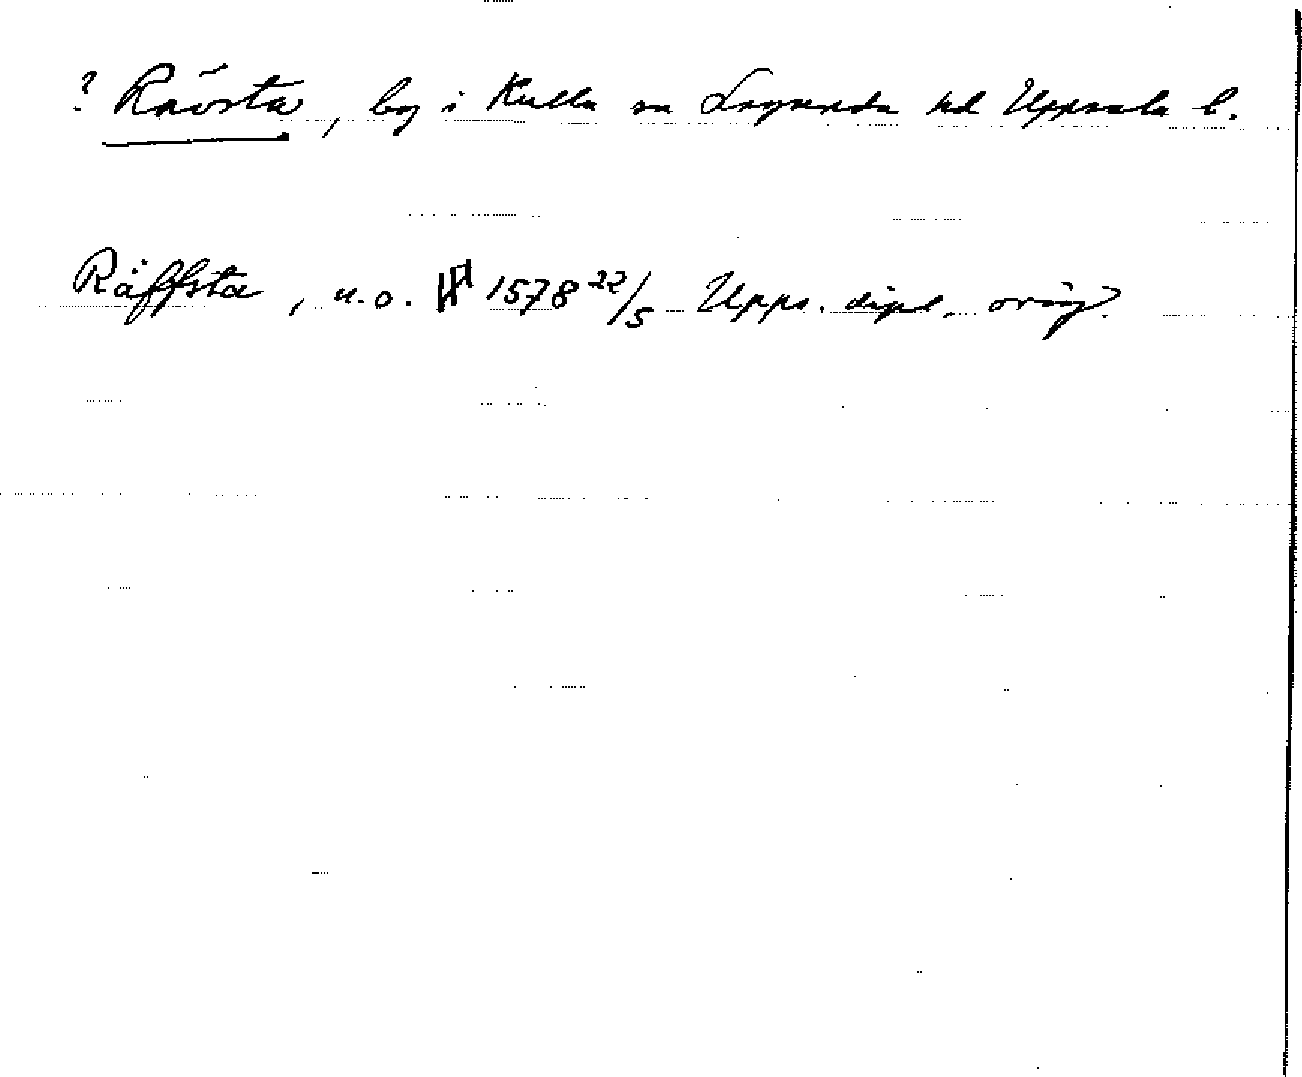 ? Rävsta, by i Kulla sn Lagunda hd Uppsala l.
Räffsta, u.o. 1578 22/5 Upps. dipl. orig.